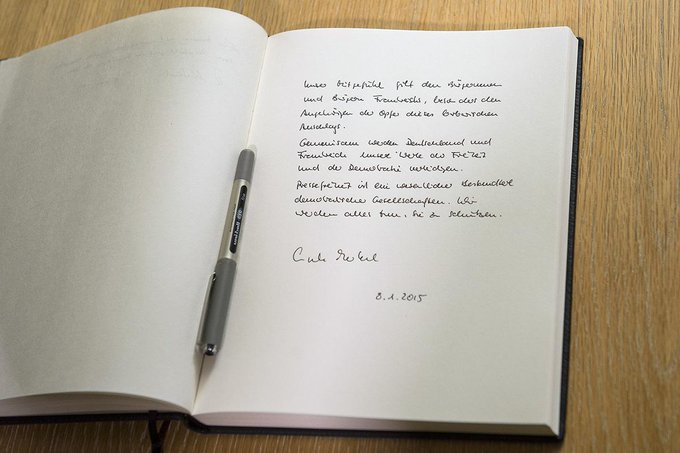 Unser Mitgefühl gilt den Bürgerinnen
und Bürgern Frankreichs, besonders den
Angehörigen der Opfer dieses barbarischen
Anschlags.
Gemeinsam werden Deutschland und
Frankreich unsere Werte der Freiheit
und der Demokratie verteidigen.
Pressefreiheit ist ein wesentlicher Bestandteil
demokratischer Gesellschaften. Wir
werden alles tun, sie zu schützen.
Angela Merkel
8.1.2015
uni-ball